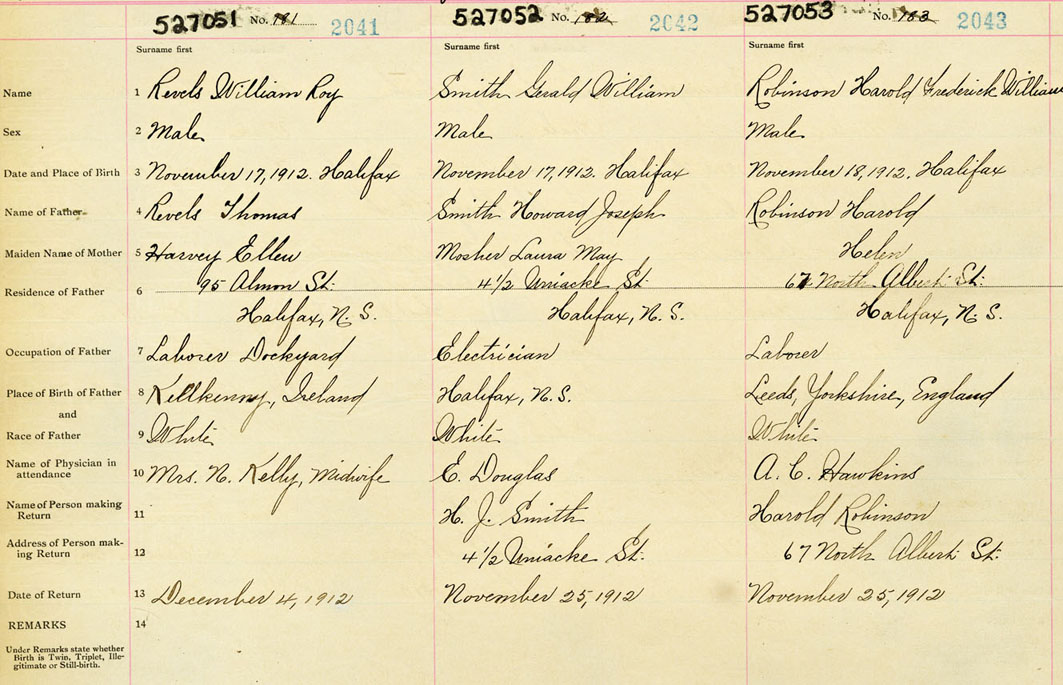 527051 No. 181 2041 527052 No. 182 2042 527053 No. 183 2043
Surname first Surname first Surname first
Name 1 Revels William Roy Smith Gerald William Robinson Harold Frederick William
Sex 2 Male Male Male
Date and Place of Birth 3 November 17, 1912. Halifax November 17, 1912. Halifax November 18, 1912. Halifax
Name of Father 4 Revels Thomas Smith Howard Joseph Robinson Harold
Maiden Name of Mother 5 Harvey Ellen Mosher Laura May Helen
Residence of Father 6 95 Almon St. 4 1/2 Uniacke St. 67 North Albert St.
Halifax, N. S. Halifax, N. S. Halifax, N. S.
Occupation of Father 7 Laborer Dockyard Electrician Laborer
Place of Birth of Father 8 Killkenny, Ireland Halifax, N. S. Leeds, Yorkshire, England
and
Race of Father 9 White White White
Name of Physician in
attendance 10 Mrs. N. Kelly, Midwife E. Douglas A. C. Hawkins
Name of Person making
Return 11 H. J. Smith Harold Robinson
Address of Person mak-
ing Return 12 4 1/2 Uniacke St. 67 North Albert St.
Date of Return 13 December 4, 1912 November 25, 1912 November 25, 1912
REMARKS 14
Under Remarks state whether
Birth is Twin, Triplet, Ille-
gitimate or Still-birth.